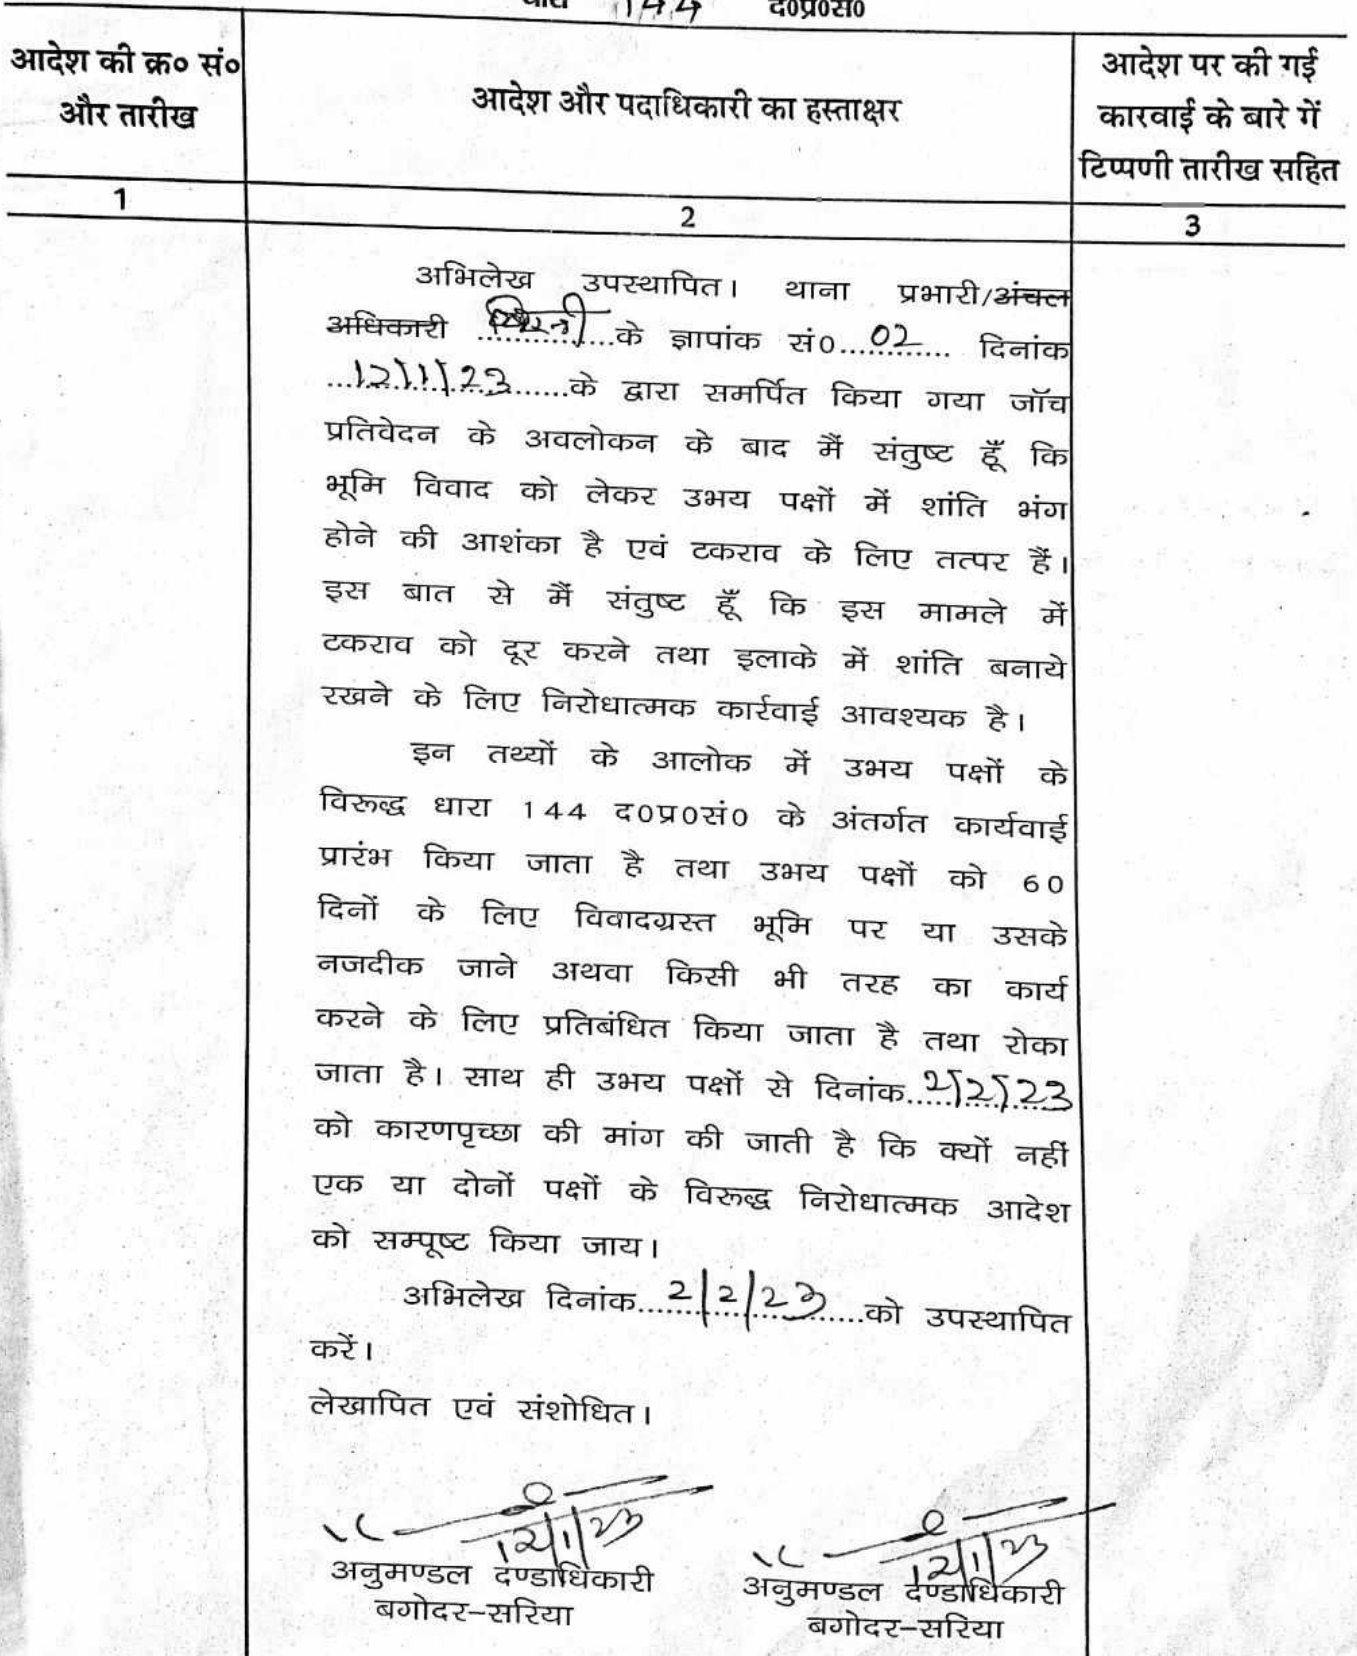 धारा 144 द०प्र०सं०
आदेश की क्र० सं०
और तारीख
आदेश और पदाधिकारी का हस्ताक्षर
आदेश पर की गई
कारवाई के बारे में
टिप्पणी तारीख सहित
1
2
3
अभिलेख उपस्थापित। थाना प्रभारी/अंचल
अधिकारी ..............के ज्ञापांक सं०...02...... दिनांक
...12/1/23......के द्वारा समर्पित किया गया जॉच
प्रतिवेदन के अवलोकन के बाद मैं संतुष्ट हूँ कि
भूमि विवाद को लेकर उभय पक्षों में शांति भंग
होने की आशंका है एवं टकराव के लिए तत्पर हैं।
इस बात से मैं संतुष्ट हूँ कि इस मामले में
टकराव को दूर करने तथा इलाके में शांति बनाये
रखने के लिए निरोधात्मक कार्रवाई आवश्यक है।
इन तथ्यों के आलोक में उभय पक्षों के
विरूद्ध धारा 144 द०प्र०सं० के अंतर्गत कार्यवाई
प्रारंभ किया जाता है तथा उभय पक्षों को 60
दिनों के लिए विवादग्रस्त भूमि पर या उसके
नजदीक जाने अथवा किसी भी तरह का कार्य
करने के लिए प्रतिबंधित किया जाता है तथा रोका
जाता है। साथ ही उभय पक्षों से दिनांक..2/2/23
को कारणपृच्छा की मांग की जाती है कि क्यों नहीं
एक या दोनों पक्षों के विरूद्ध निरोधात्मक आदेश
को सम्पूष्ट किया जाय।
अभिलेख दिनांक...2/2/23....को उपस्थापित
करें।
लेखापित एवं संशोधित।
12/1/23 12/1/23
अनुमण्डल दण्डाधिकारी अनुमण्डल दण्डाधिकारी
बगोदर–सरिया बगोदर–सरिया